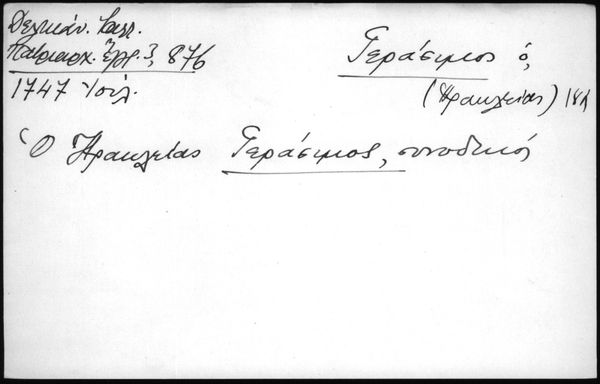 Δελικάν. Καλλ.
Πατριαρχ. Ἔγγρ. 3, 876
1747 Ἰούλ.
Γεράσιμος ὁ,
(Ἡρακλείας) 18λ
Ὁ Ἡρακλείας Γεράσιμος, συνοδικός